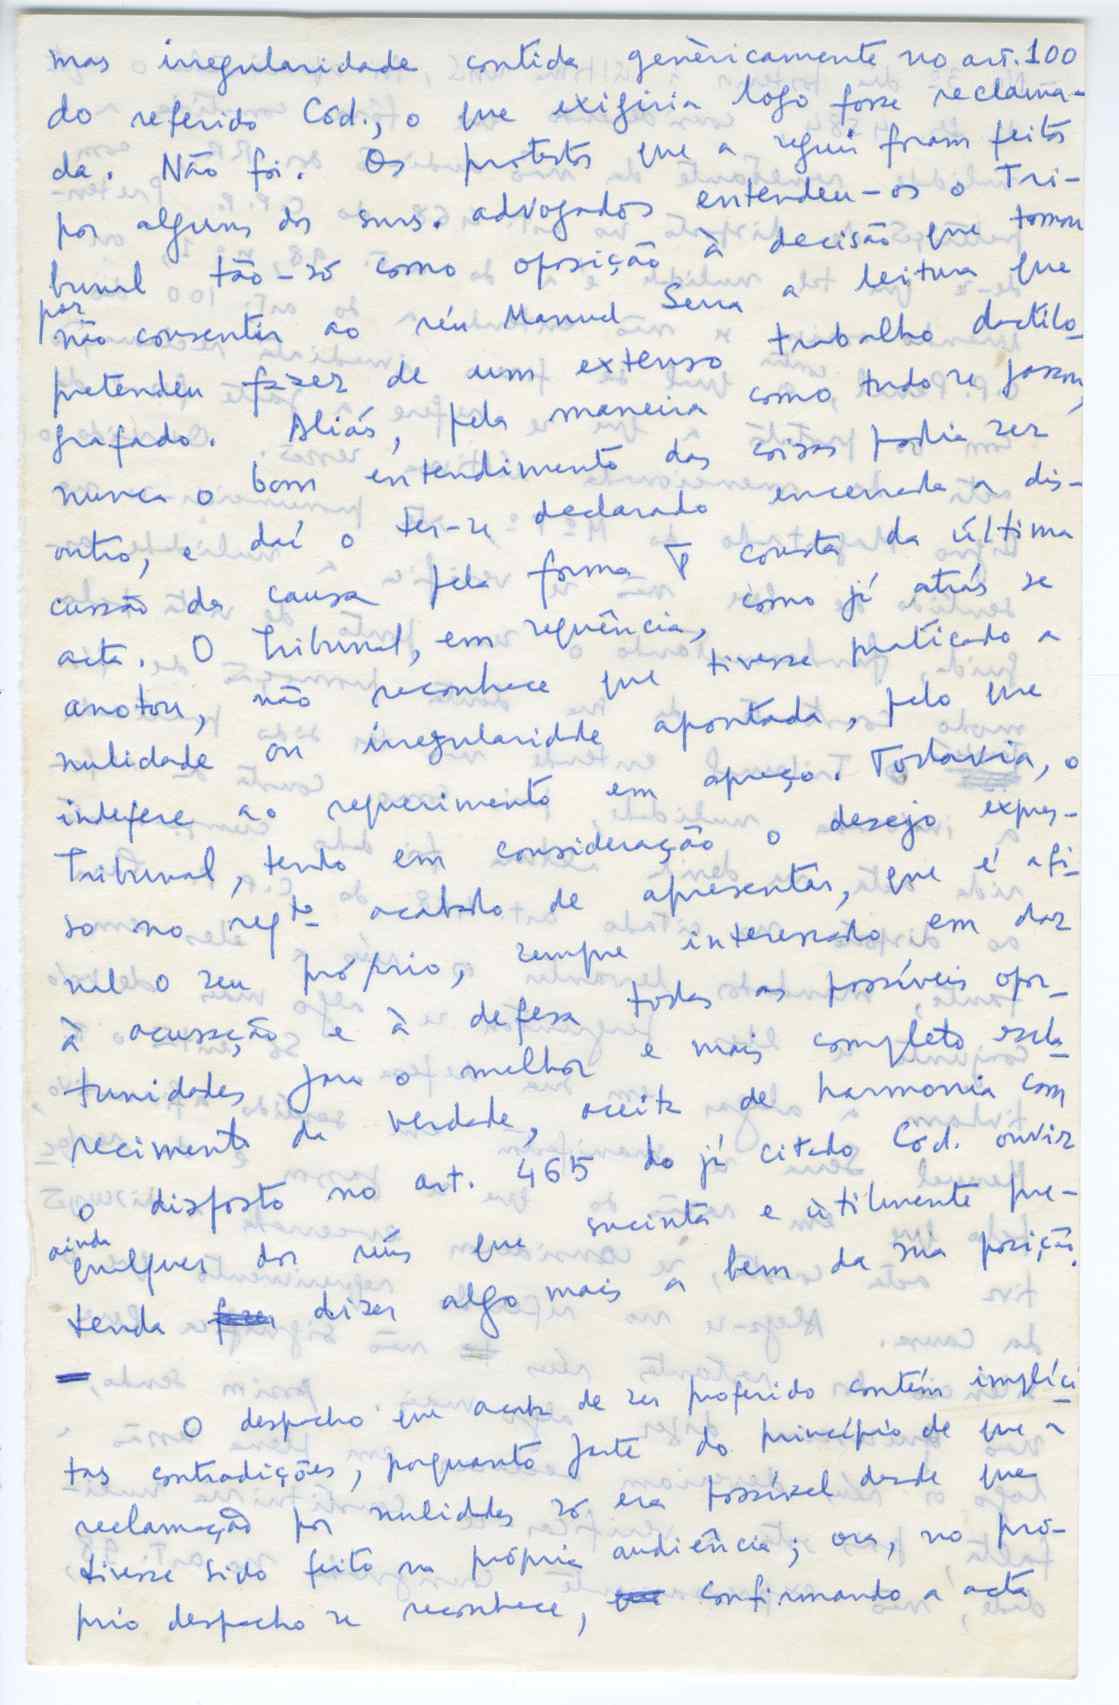 mas irregularidade contida genèricamente no art. 100
do referido Cód., o que exigiria logo fosse reclama-
da. Não foi. Os protestos que a seguir foram feitos
por alguns ds snrs. advogados entendeu-os o Tri-
bunal tão-só como oposição à decisão que tomou
por
não consentir ao réu Manuel Serra a leitura que
pretendeu fazer de um extenso trabalho dactilo-
grafado. Aliás, pela maneira como tudo se passou,
nunca o bom entendimento das coisas podia ser
outro, e daí o ter-se declarado encerrada a dis-
cussão da causa pela forma q̄ consta da última
acta. O Tribunal, em sequência, como já atrás se
anotou, não reconhece que tivesse praticado a
nulidade ou irregularidde apontada, pelo que
indefere ao requerimento em apreço. Todavia, o
Tribunal, tendo em consideração o desejo expres-
so no reqto acabado de apresentar, que é afi-
nal o seu próprio, sempre interessado em dar
à acusação e à defesa todas as possíveis opor-
tunidades para o melhor e mais completo escla-
recimento da verdade, aceita de harmonia com
o disposto no art. 465 do já citado Cód. ouvir
ainda
qualquer dos réus que sucinta e ùtilmente pre-
tenda fazer dizer algo mais a bem da sua posição.
O despacho que acaba de ser proferido contém implíci-
tas contradições, porquanto parte do princípio de que a
reclamação por nulidades só era possível desde que
tivesse sido feito na própria audiência; ora, no pró-
prio despacho se reconhece, que confirmando a acta